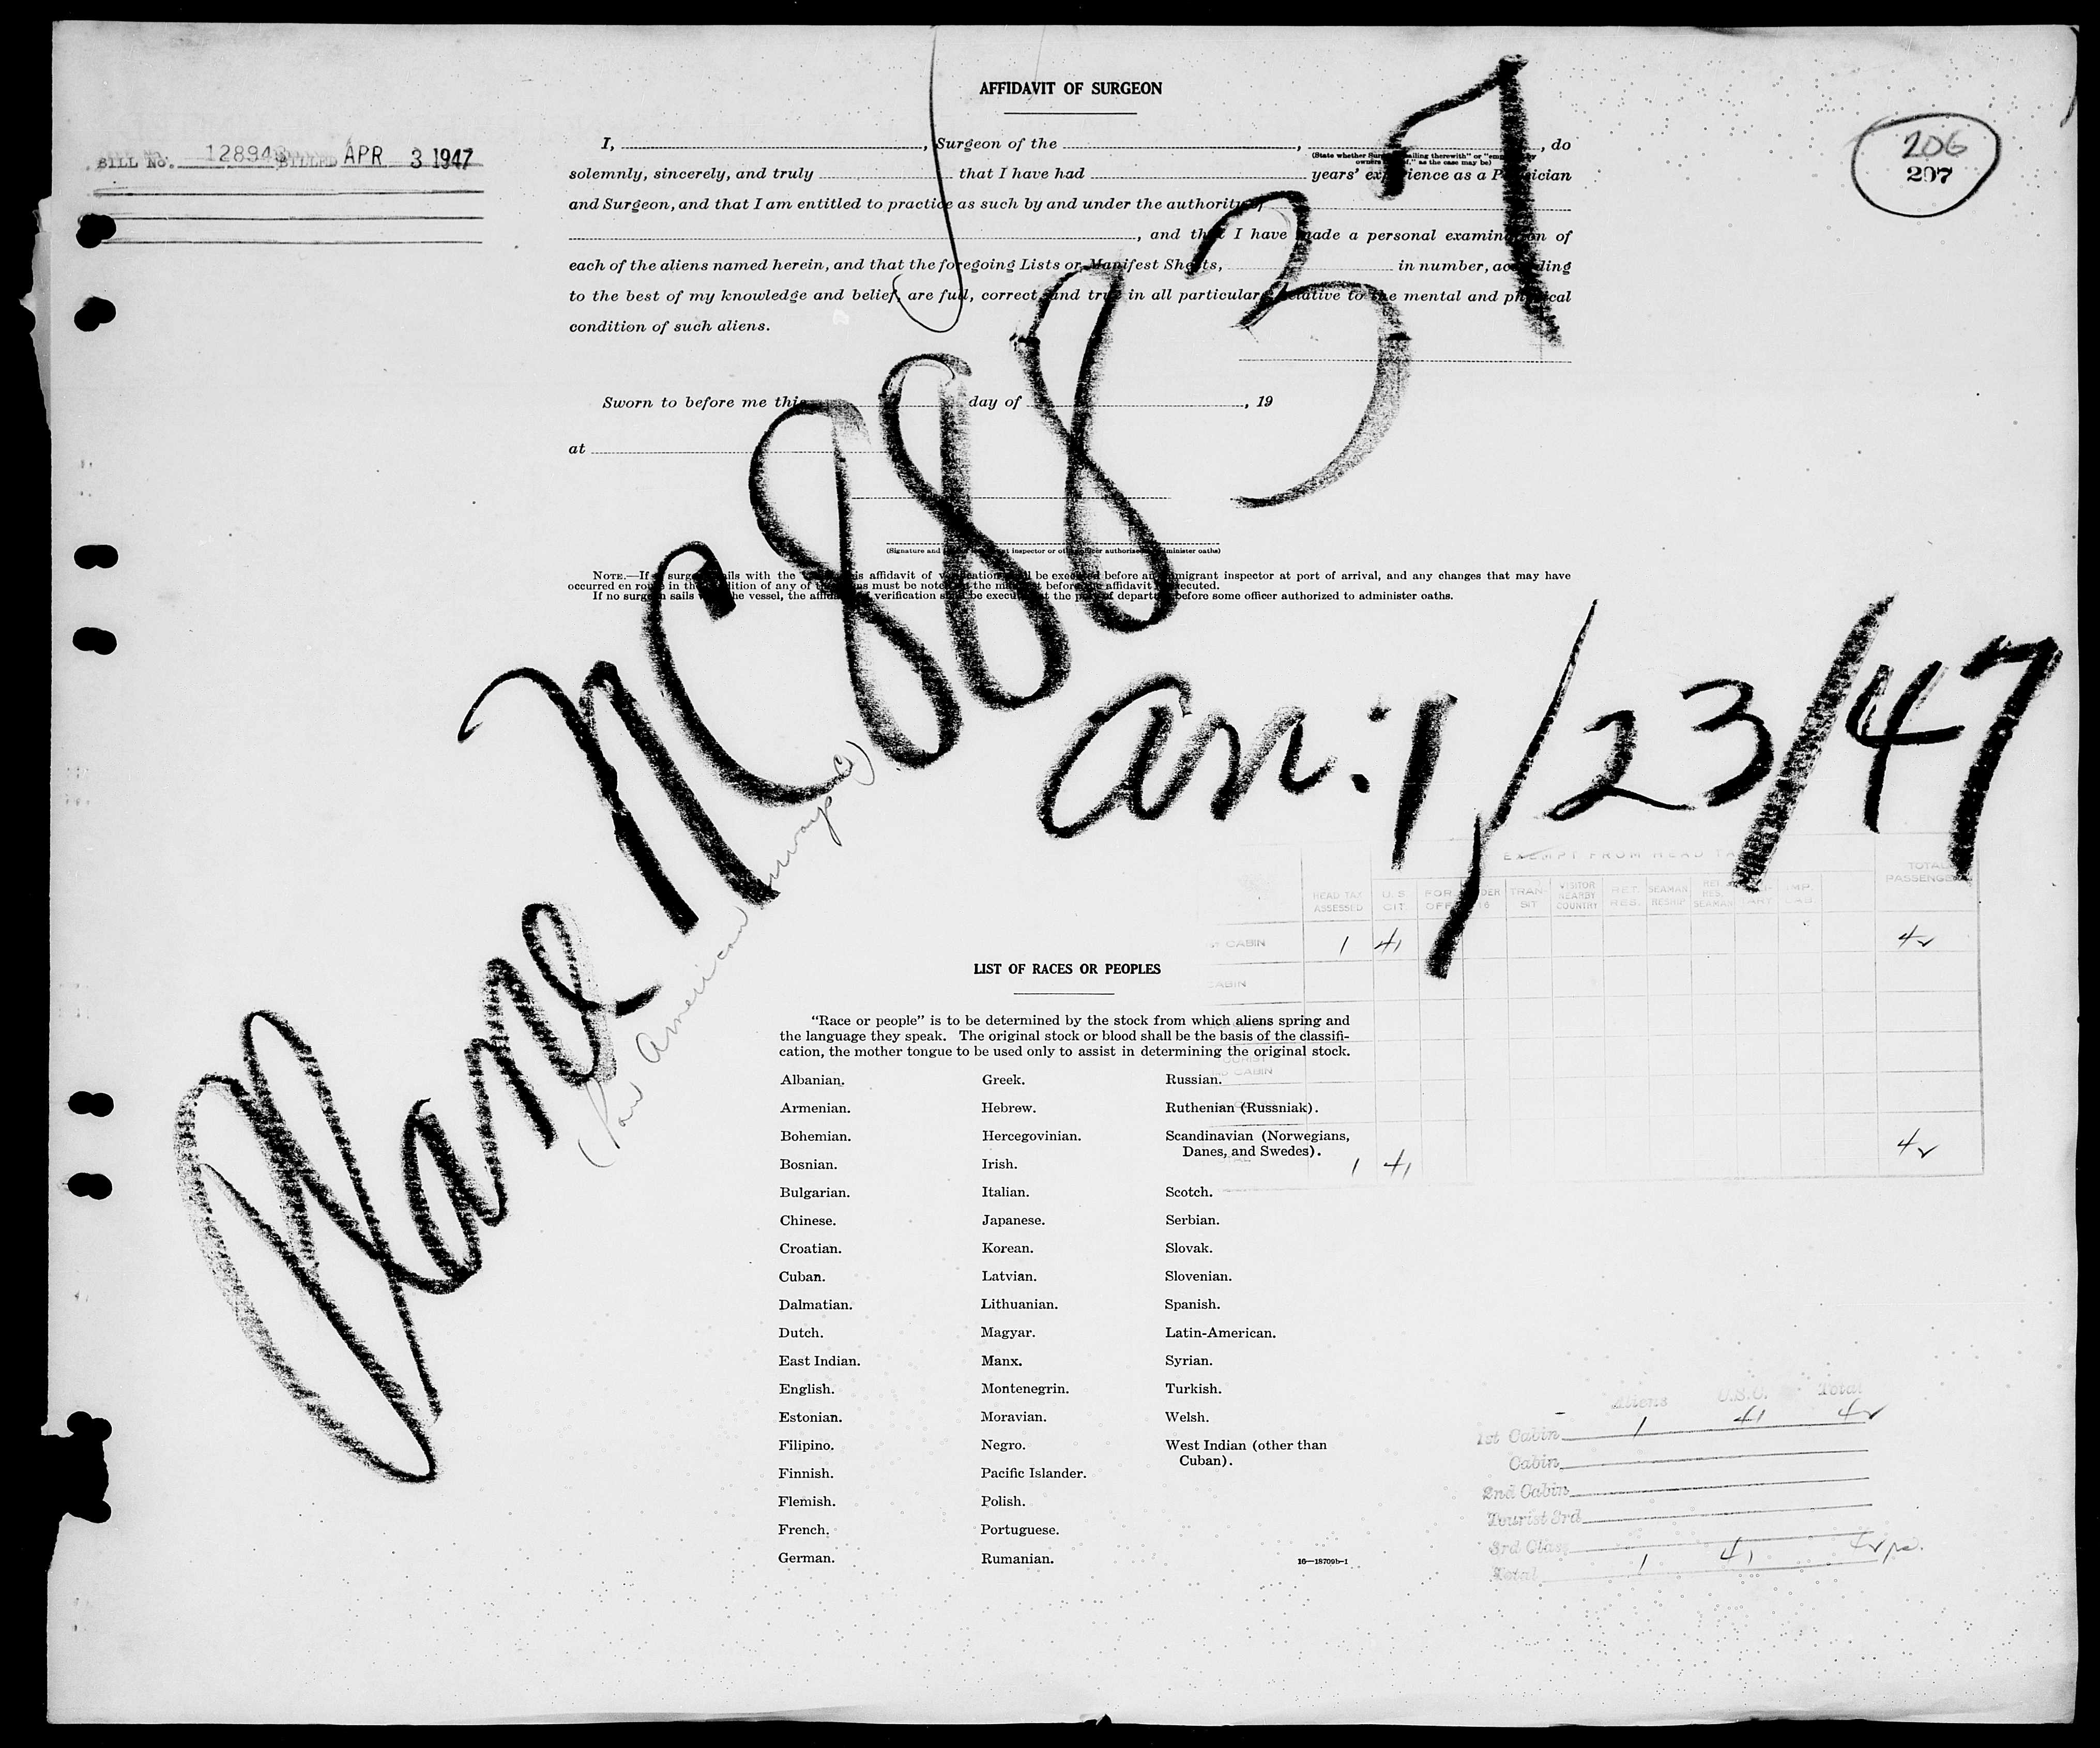 AFFIDAVIT OF SURGEON
BILL No. 12894 BILLED APR 3 1947
206
207
I, , Surgeon of the , , do
(State whether Surgeon "sailing therewith" or "employed by owners ," as the case may be)
solemnly, sincerely, and truly that I have had years' experience as a Physician
and Surgeon, and that I am entitled to practice as such by and under the authority of
, and that I have made a personal examination of
each of the aliens named herein, and that the foregoing Lists or Manifest Sheets, in number, according
to the best of my knowledge and belief, are full, correct, and true in all particulars, relative to the mental and physical
condition of such aliens.
Sworn to before me this day of , 19
at
(Signature and inspector or other officer authorized to administer oaths)
NOTE.—If a surgeon sails with the this affidavit of verification shall be executed before an immigrant inspector at port of arrival, and any changes that may have
occurred en route in the condition of any of the aliens must be noted on the manifest before the affidavit is executed.
If no surgeon sails with the vessel, the affidavit of verification shall be executed at the port of departure before some officer authorized to administer oaths.
Plane NC 88837
(Pan American Airways)
arr: 1/23/47
EXEMPT FROM HEAD TAX
HEAD TAX ASSESSED U.S. CIT. FOR. OFF. UNDER 16 TRANSIT VISITOR NEARBY COUNTRY RET. RES. SEAMAN RESHIP RET. RES. SEAMAN TOTAL PASSENGERS
CABIN 1 41 42
CABIN
TOURIST
CABIN
1 41 42
LIST OF RACES OR PEOPLES
"Race or people" is to be determined by the stock from which aliens spring and
the language they speak. The original stock or blood shall be the basis of the classifi-
cation, the mother tongue to be used only to assist in determining the original stock.
Albanian. Greek. Russian.
Armenian. Hebrew. Ruthenian (Russniak).
Bohemian. Hercegovinian. Scandinavian (Norwegians,
Danes, and Swedes).
Bosnian. Irish.
Bulgarian. Italian. Scotch.
Chinese. Japanese. Serbian.
Croatian. Korean. Slovak.
Cuban. Latvian. Slovenian.
Dalmatian. Lithuanian. Spanish.
Dutch. Magyar. Latin-American.
East Indian. Manx. Syrian.
English. Montenegrin. Turkish.
Estonian. Moravian. Welsh.
Filipino. Negro. West Indian (other than
Cuban).
Finnish. Pacific Islander.
Flemish. Polish.
French. Portuguese.
German. Rumanian.
16—18709b-1
Aliens U.S.C. Total
1st Cabin 1 41 42
Cabin
2nd Cabin
Tourist 3rd
3rd Class
Total 1 41 42